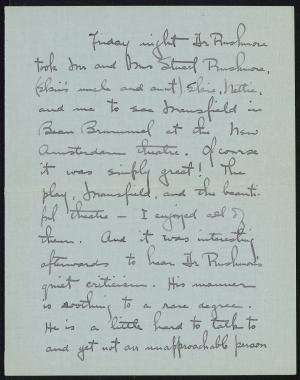 Friday night Dr Rushmore
took Mr and Mrs Stuart Rushmore,
(Elsie's uncle and aunt), Elsie, Nettie,
and me to see Mansfield in
Beau Brummel at the New
Amsterdam theatre. Of course
it was simply great! The
play, Mansfield, and the beauti-
ful theatre – I enjoyed all of
them. And it was interesting
afterwards to hear Dr Rushmore's
quiet criticism. His manner
is soothing to a rare degree.
He is a little hard to talk to
and yet not an unapproachable person